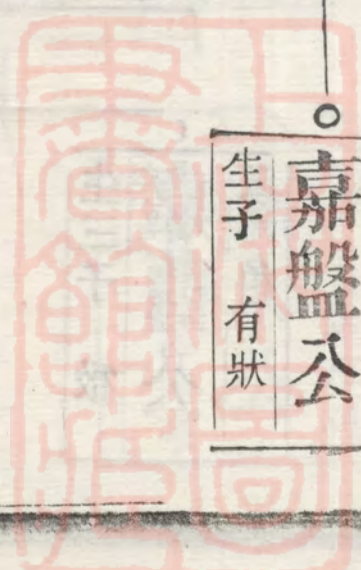 嘉盤公
生子 有狀